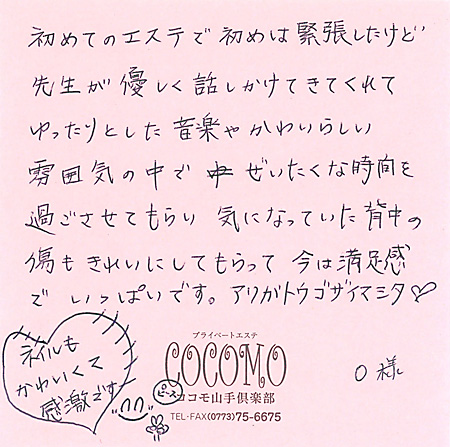 初めてのエステで初めは緊張したけど
先生が優しく話しかけてきてくれて
ゆったりとした音楽やかわいらしい
雰囲気の中で ぜいたくな時間を
過ごさせてもらい 気になっていた背中の
傷もきれいにしてもらって 今は満足感
で いっぱいです。アリガトウゴザイマシタ♡
ネイルも
かわいくて
感激です
ピース
プライベートエステ
COCOMO
ココモ山手倶楽部
TEL・FAX(0773)75-6675
O様